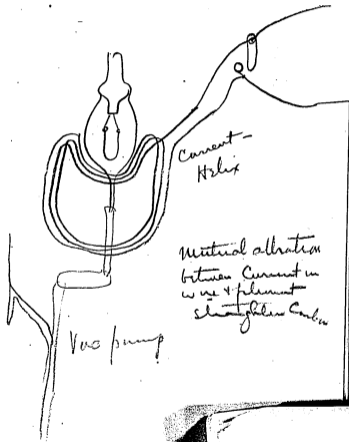 Current -
Helix
Mutual attration
between Current in
wire & filament
straighten Carbon
Vac pump